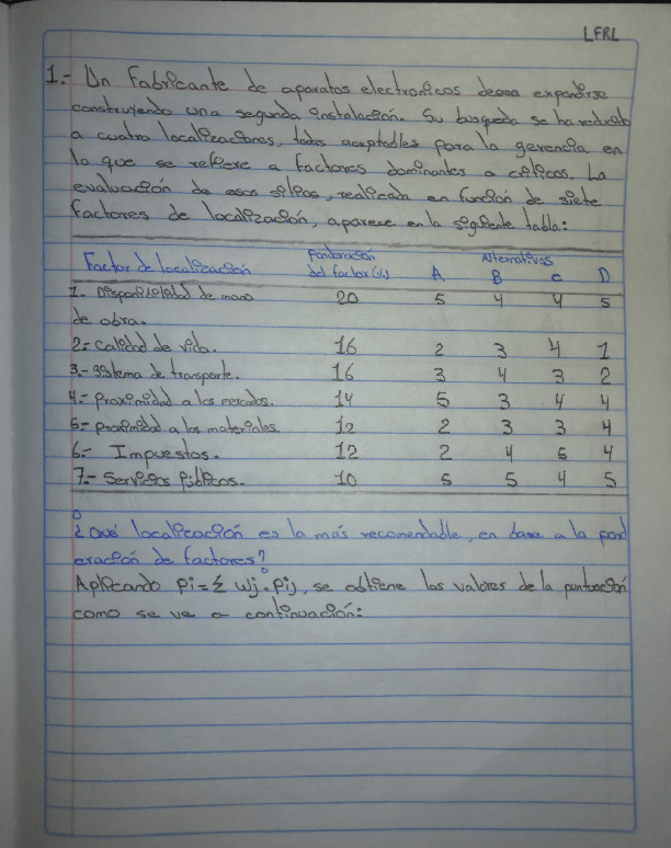 LFRL
1.- Un Fabricante de aparatos electronicos desea expandirse
construyendo una segunda instalación. Su busqueda se ha reducido
a cuatro localizaciones, todas aceptables para la gerencia en
lo que se refiere a factores dominantes o criticos. La
evaluación de esos sitios, realizada en función de siete
factores de localización, aparece en la siguiente tabla:
Factor de localización Ponderación del factor (%) Alternativas A B C D
1.- Disponibilidad de mano 20 5 4 4 5
de obra.
2.- calidad de vida. 16 2 3 4 1
3.- sistema de transporte. 16 3 4 3 2
4.- proximidad a los mercados. 14 5 3 4 4
5.- proximidad a los materiales. 12 2 3 3 4
6.- Impuestos. 12 2 4 5 4
7.- Servicios Públicos. 10 5 5 4 5
¿Qué localización es la más recomendable, en base a la pond
eración de factores?
Aplicando Pi = Σ wj · Pij, se obtiene los valores de la puntuación
como se ve a continuación: